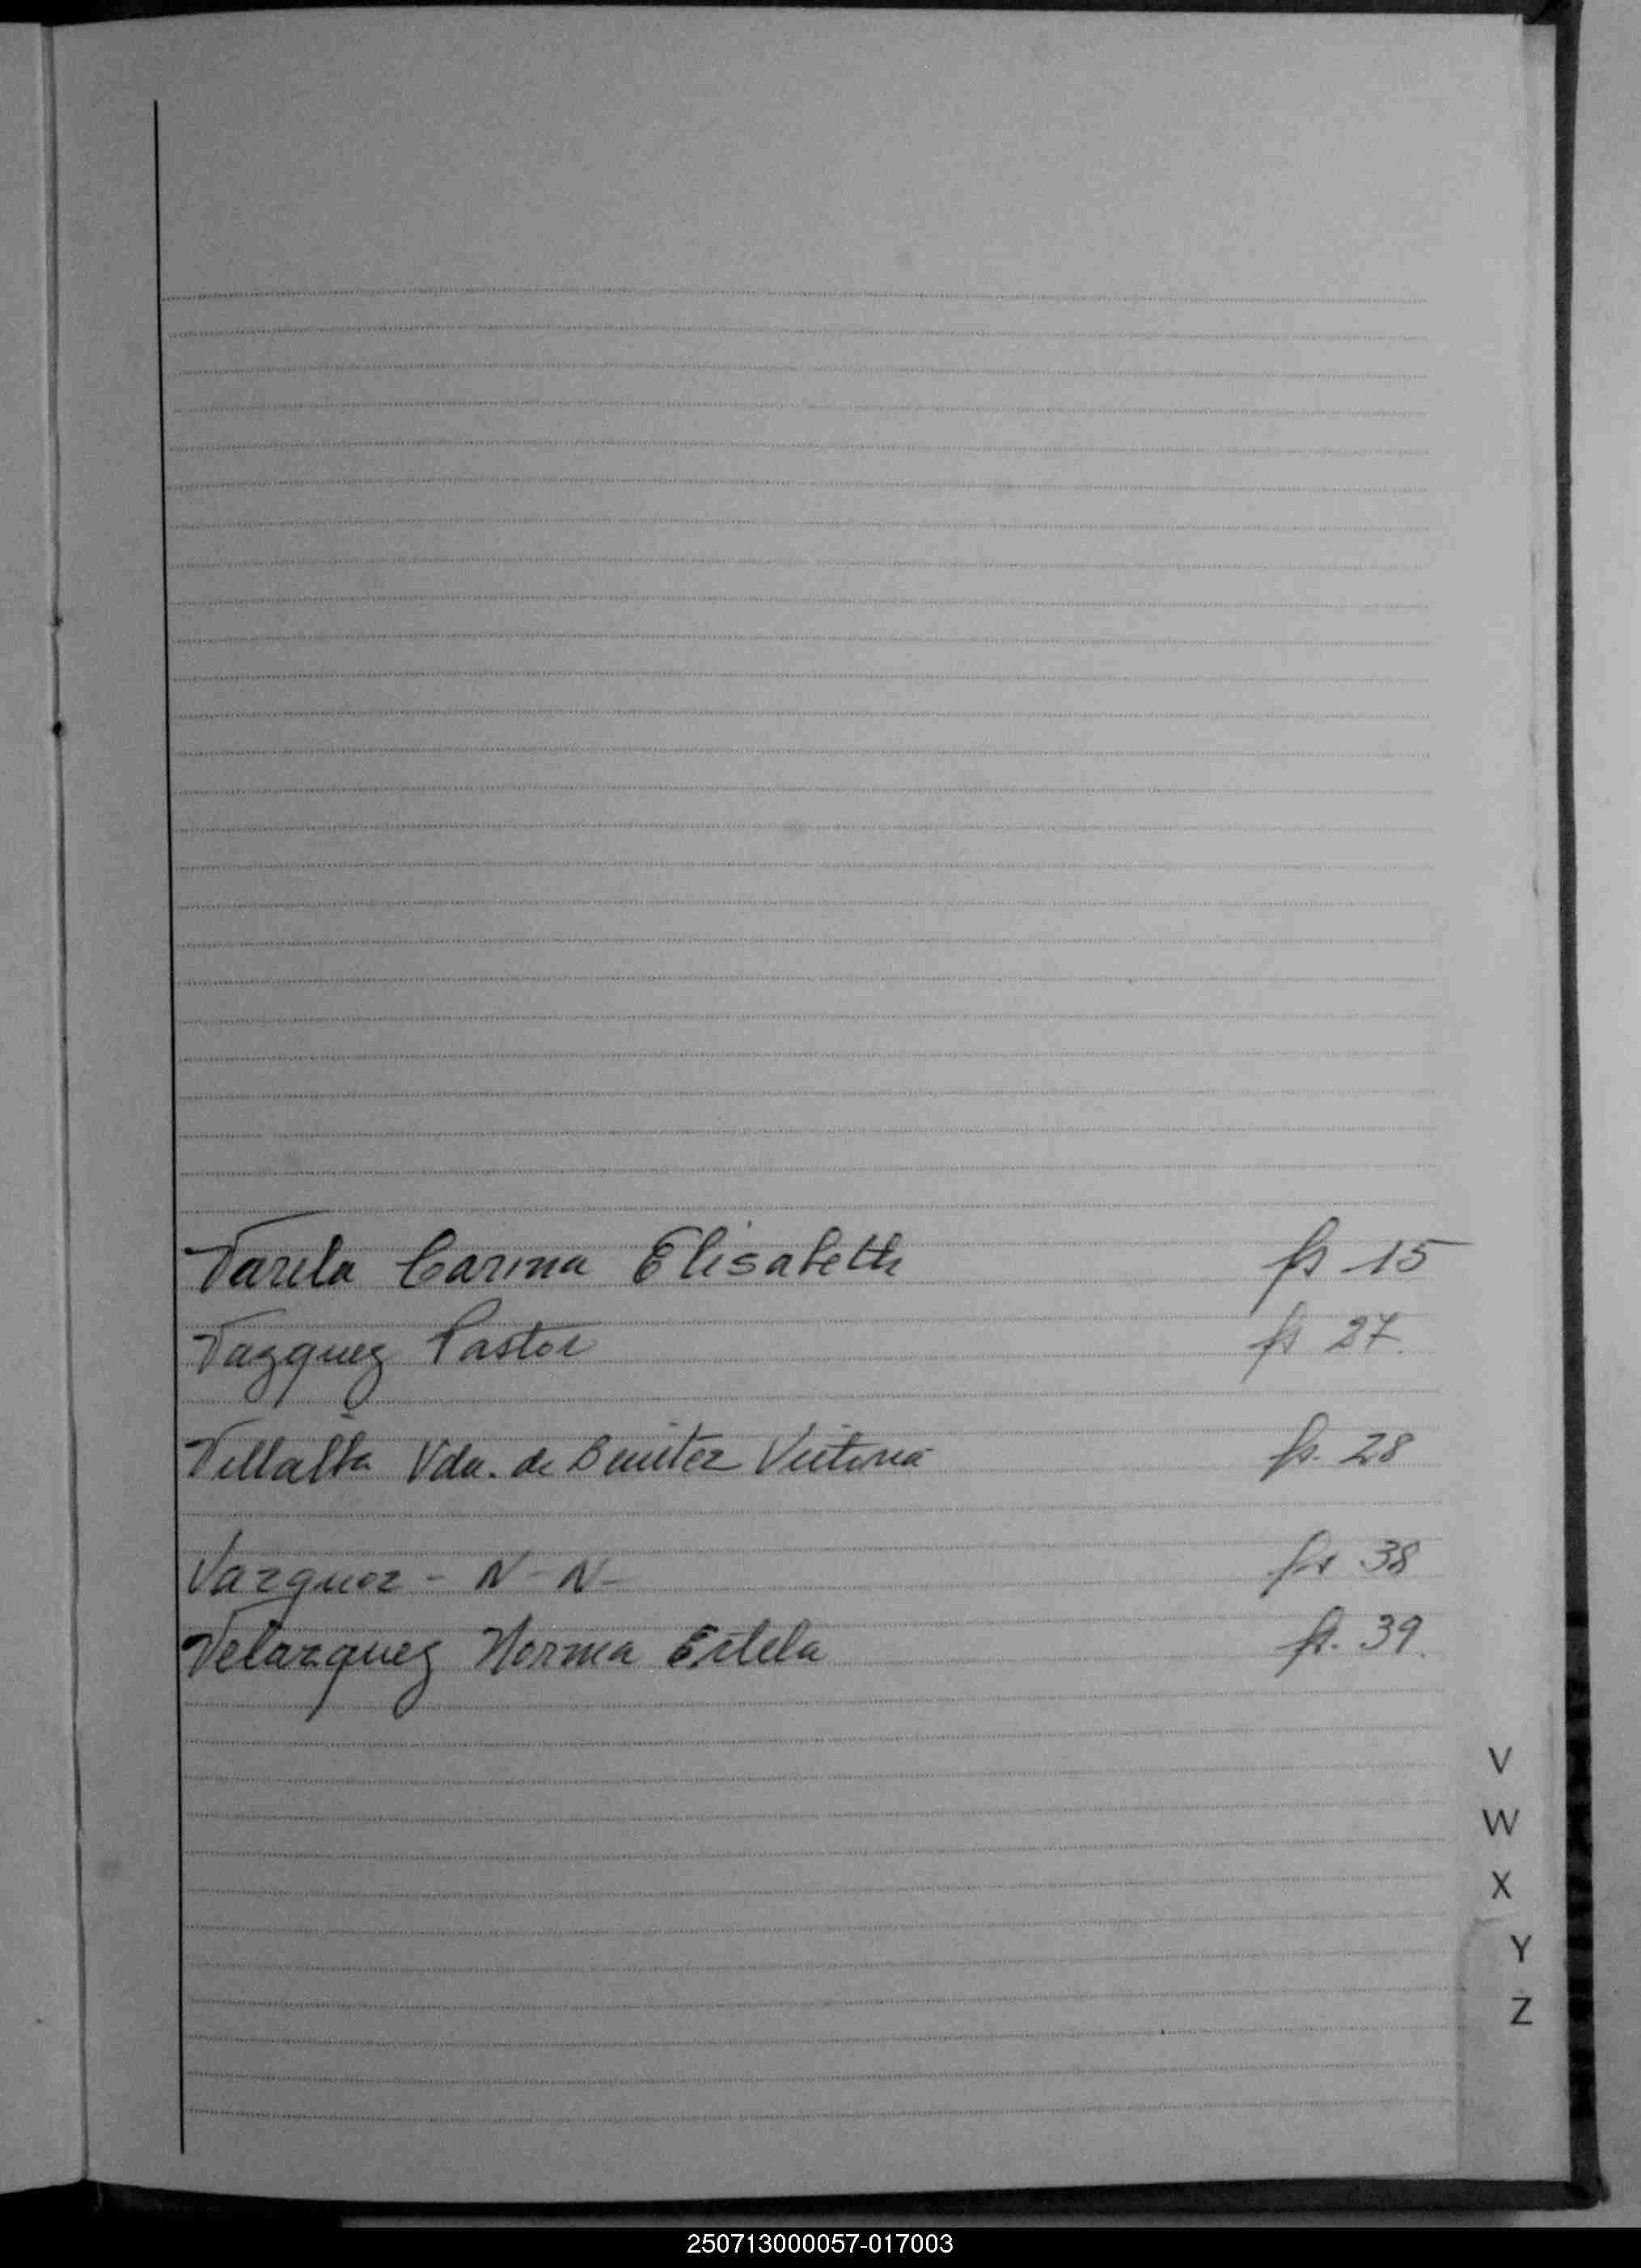 Varela Carina Elisabeth fs 15
Vazquez Pastor fs 27.
Villalba Vda. de Benitez Victoria fs. 28
Vazquez - N - N - fs 38
Velazquez Norma Estela fs. 39.
V
W
X
Y
Z
250713000057-017003